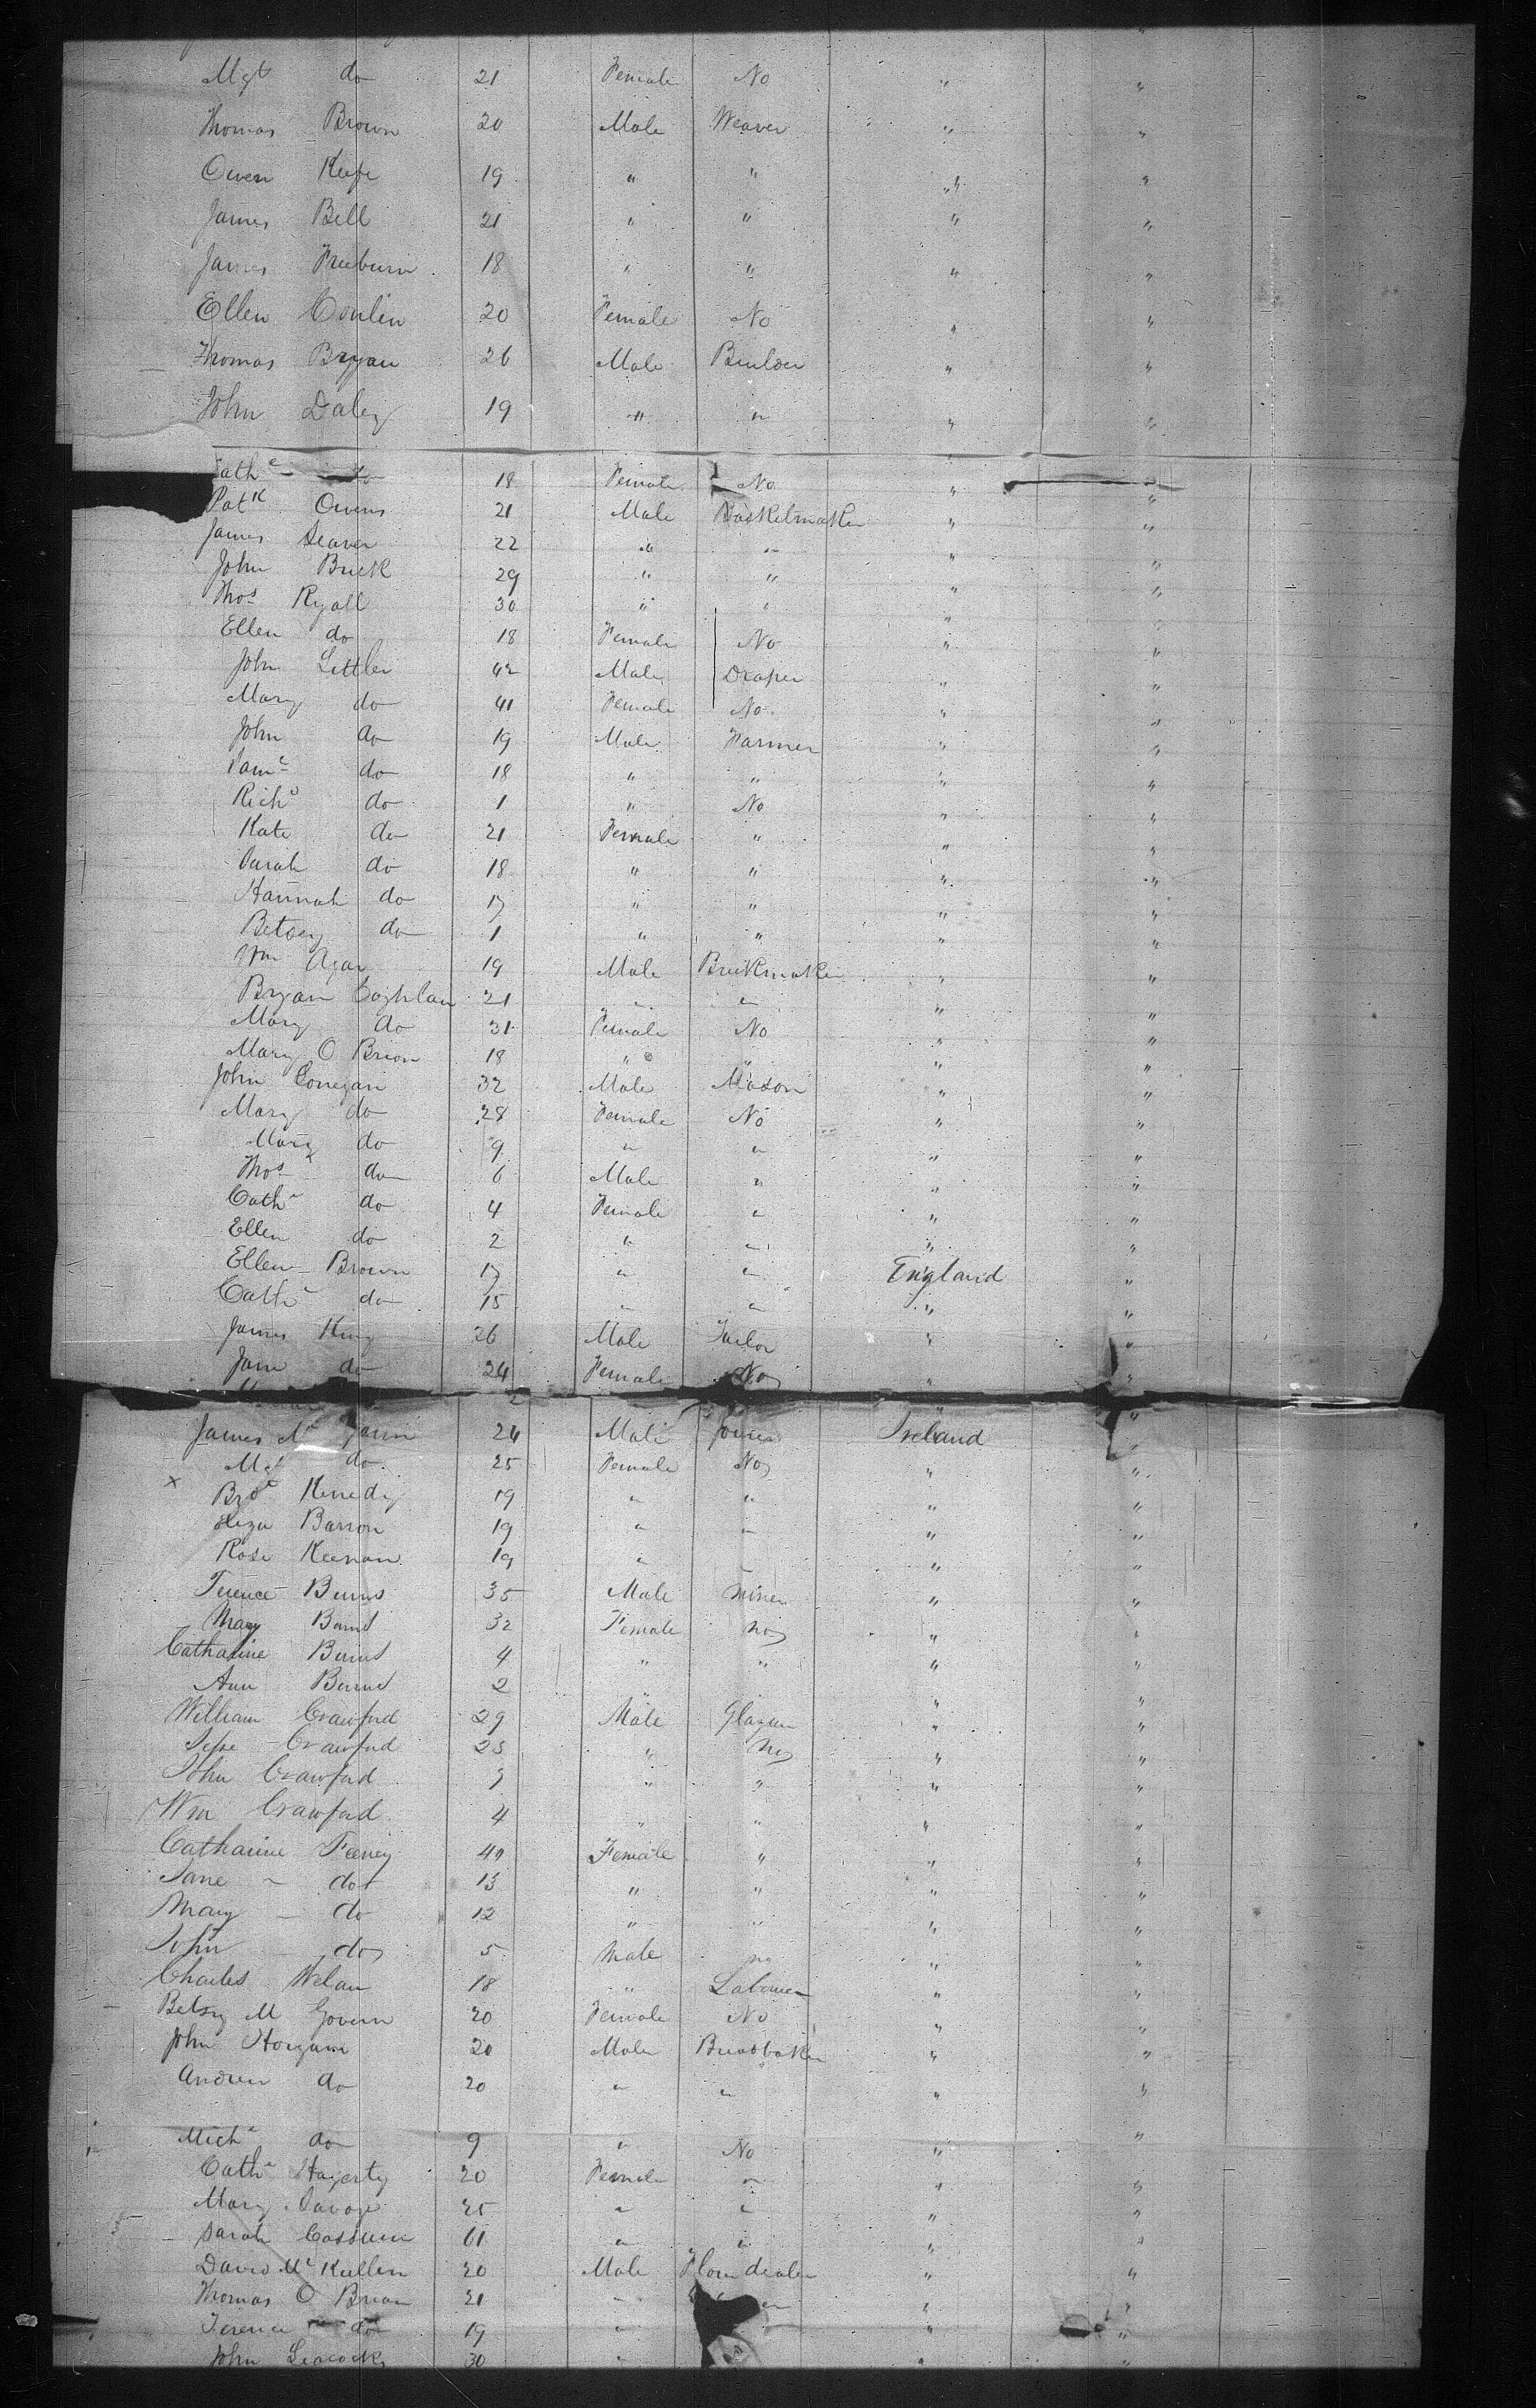 Mgt do 21 Female No " "
Thomas Brown 20 Male Weaver " "
Owen Keefe 19 " " " "
James Bell 21 " " " "
James Freeburn 18 " " " "
Ellen Conlin 20 Female No " "
Thomas Bryan 26 Male Builder " "
John Daley 19 " " " "
Cathe do 18 Female No " "
Patk Owens 21 Male Basketmaker " "
James Seaver 22 " " " "
John Brick 29 " " " "
Thos Ryall 30 " " " "
Ellen do 18 Female No " "
John Littler 42 Male Draper " "
Mary do 41 Female No " "
John do 19 Male Farmer " "
Saml do 18 " " " "
Richd do 1 " No " "
Kate do 21 Female " " "
Sarah do 18 " " " "
Hannah do 17 " " " "
Betsey do 1 " " " "
Wm Agar 19 Male Brickmaker " "
Bryan Coghlan 21 " " " "
Mary do 31 Female No " "
Mary O Brien 18 " " " "
John Conegan 32 Male Mason " "
Mary do 28 Female No " "
Mary do 9 " " " "
Thos do 6 Male " " "
Cathe do 4 Female " " "
Ellen do 2 " " " "
Ellen Brown 17 " " England "
Cathe do 15 " " " "
James King 26 Male Tailor " "
Jane do 24 Female No " "
James Mc 24 Male Joiner Ireland "
Mgt do 25 Female No " "
x Bridt Kenedy 19 " " " "
Eliza Barron 19 " " " "
Rose Keenan 19 " " " "
Terence Burns 35 Male Miner " "
Mary Burns 32 Female No " "
Catharine Burns 4 " " " "
Ann Burns 2 " "
William Crawford 29 Male Glazier " "
Crawford 23 " No " "
John Crawford 7 " " " "
Wm Crawford 4 " " " "
Catharine Feeney 40 Female " " "
Jane do 13 " " " "
Mary do 12 " " " "
John do 5 Male no " "
Charles Welan 18 " Labourer " "
Betsy M Govern 20 Female No " "
John Horgan 20 Male Breadbaker " "
Andrew do 20 " " " "
Michl do 9 " No " "
Cathe Hagerty 20 Female " " "
Mary Savage 25 " " " "
Sarah 61 " " " "
David Mc Kullen 20 Male Flour dealer " "
Thomas O Brien 21 " " "
Terence do 19 " " "
John Leacock 30 " " "